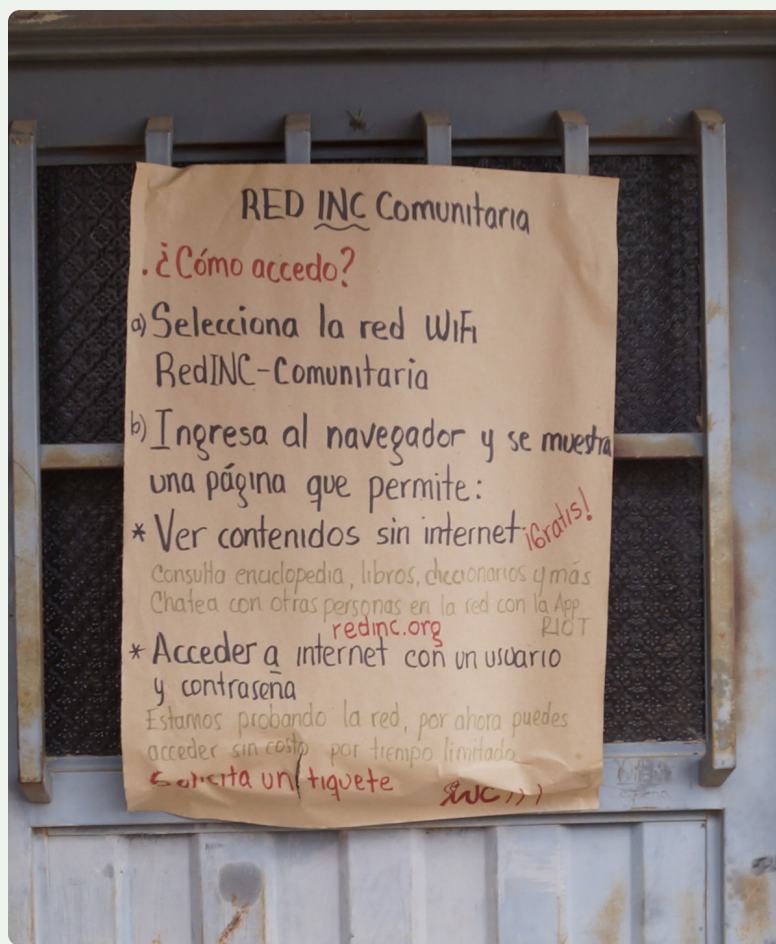 RED INC Comunitaria
. ¿Cómo accedo?
a) Selecciona la red WiFi
RedINC-Comunitaria
b) Ingresa al navegador y se muestra
una página que permite:
* Ver contenidos sin internet ¡Gratis!
Consulta enciclopedia, libros, diccionarios y más
Chatea con otras personas en la red con la App
RIOT
redinc.org
* Acceder a internet con un usuario
y contraseña
Estamos probando la red, por ahora puedes
acceder sin costo por tiempo limitado
Solicita un tiquete
INC )))